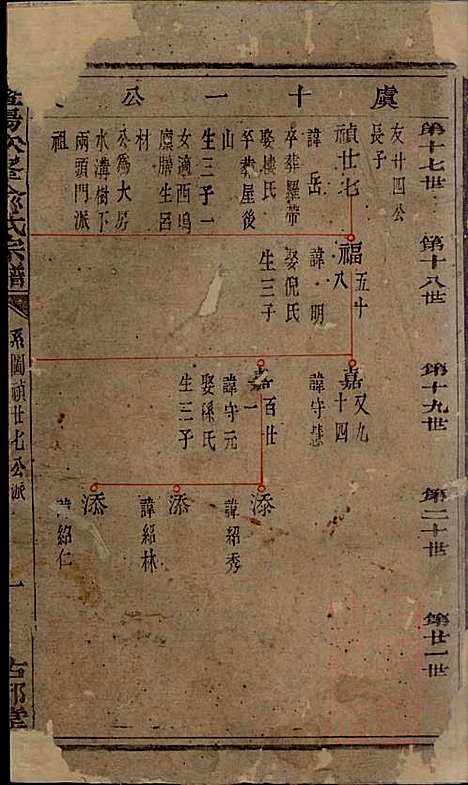 虞十一公
第十七世
第十八世
第十九世
第二十世
第廿一世
友廿四公
長子
禎廿七
諱岳
卒葬羅帶
娶樓氏
卒葬屋後
山
生三子一
女適西塢
廩膳生呂
材
公為大房
水溝樹下
兩頭門派
祖
福五十八
諱明
娶倪氏
生三子
嘉又九十四
諱守慧
嘉百廿一
諱守元
娶孫氏
生三子
添
諱紹秀
添
諱紹林
添
諱紹仁
氏宗譜
系圖禎廿七公派
一